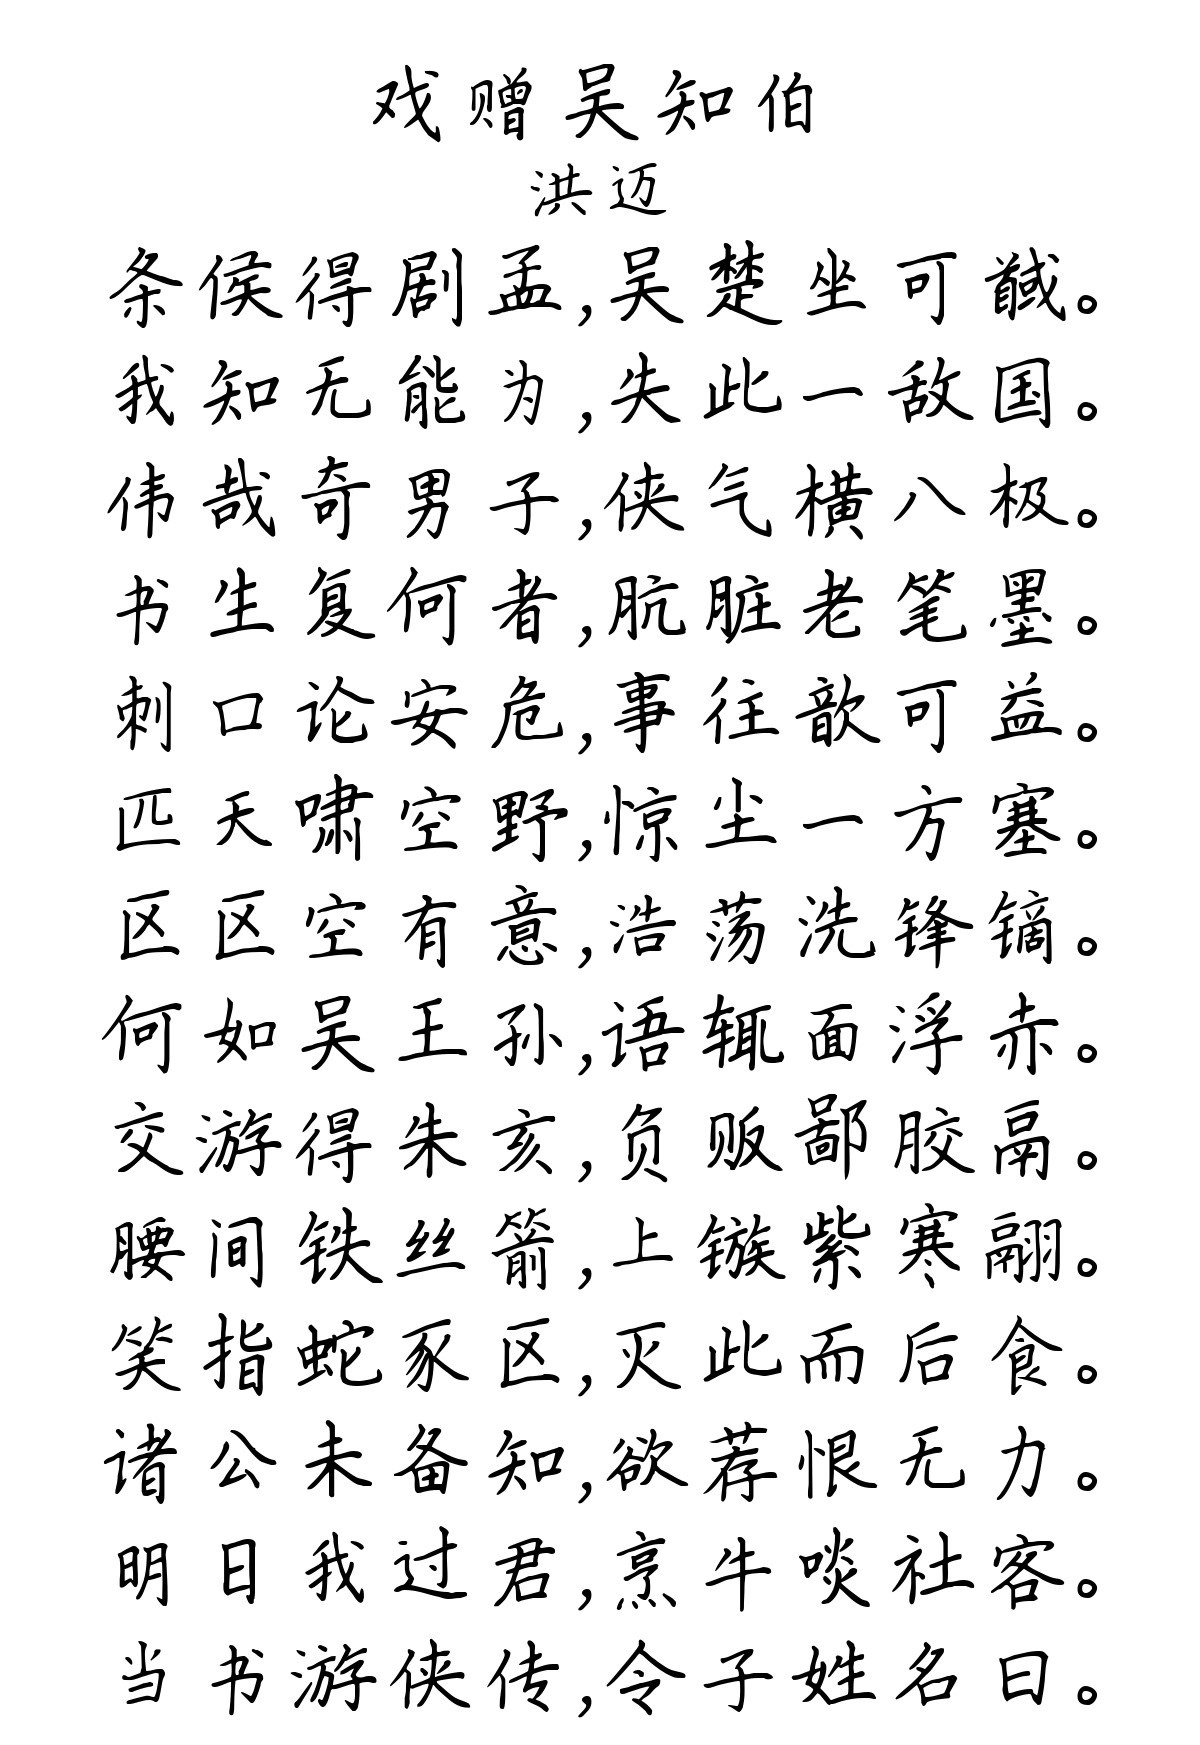 戏赠吴知伯
洪迈
条侯得剧孟,吴楚坐可馘。
我知无能为,失此一敌国。
伟哉奇男子,侠气横八极。
书生复何者,肮脏老笔墨。
刺口论安危,事往歆可益。
匹天啸空野,惊尘一方塞。
区区空有意,浩荡洗锋镝。
何如吴王孙,语辄面浮赤。
交游得朱亥,负贩鄙胶鬲。
腰间铁丝箭,上镞紫寒翮。
笑指蛇豕区,灭此而后食。
诸公未备知,欲荐恨无力。
明日我过君,烹牛啖社客。
当书游侠传,令子姓名曰。